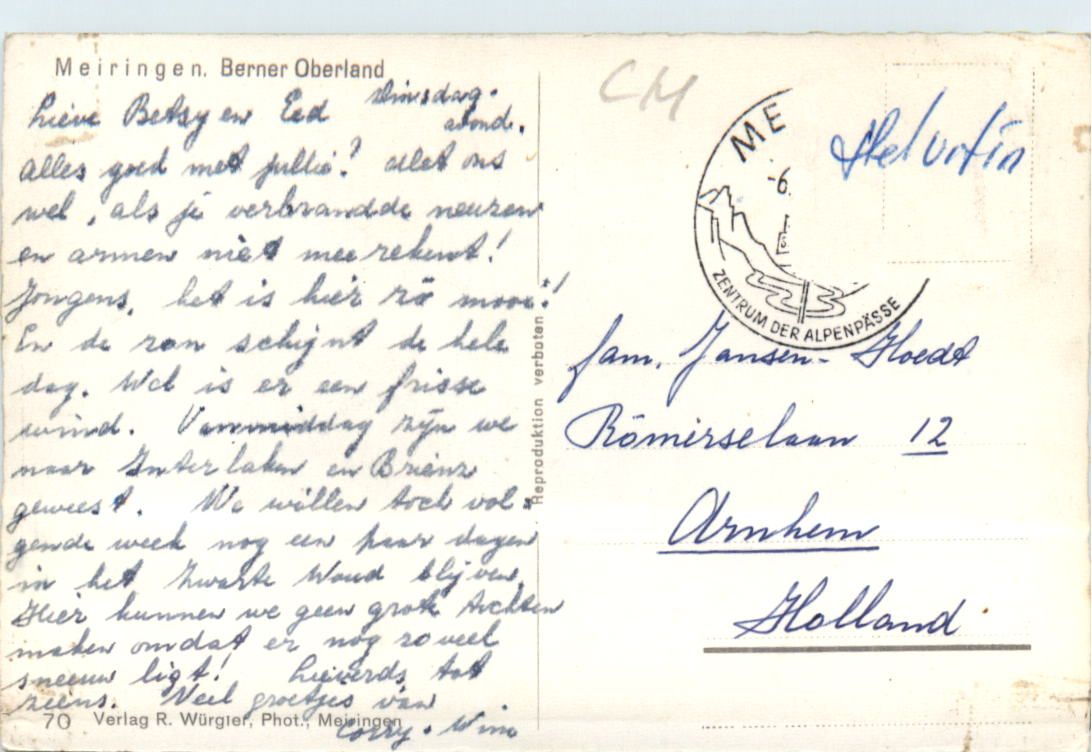 Meiringen. Berner Oberland
Dinsdag-
avond.
Lieve Betsy en Eed
alles goed met jullie? Met ons
wel, als je verbrandde neuzen
en armen niet meerekent!
Jongens, het is hier zó mooi!
En de zon schijnt de hele
dag. Wel is er een frisse
wind. Vanmiddag zijn we
naar Interlaken en Brienz
geweest. We willen toch vol-
gende week nog een paar dagen
in het Zwarte Woud blijven.
Hier kunnen we geen grote tochten
maken omdat er nog zoveel
sneeuw ligt! Lieverds tot
ziens. Veel groetjes van
Corry. Wim
70 Verlag R. Würgler, Phot., Meiringen
Reproduktion verboten
CM
ME
-6.
ZENTRUM DER ALPENPÄSSE
fam. Jansen- Hoedt
Römerselaan 12
Arnhem
Holland